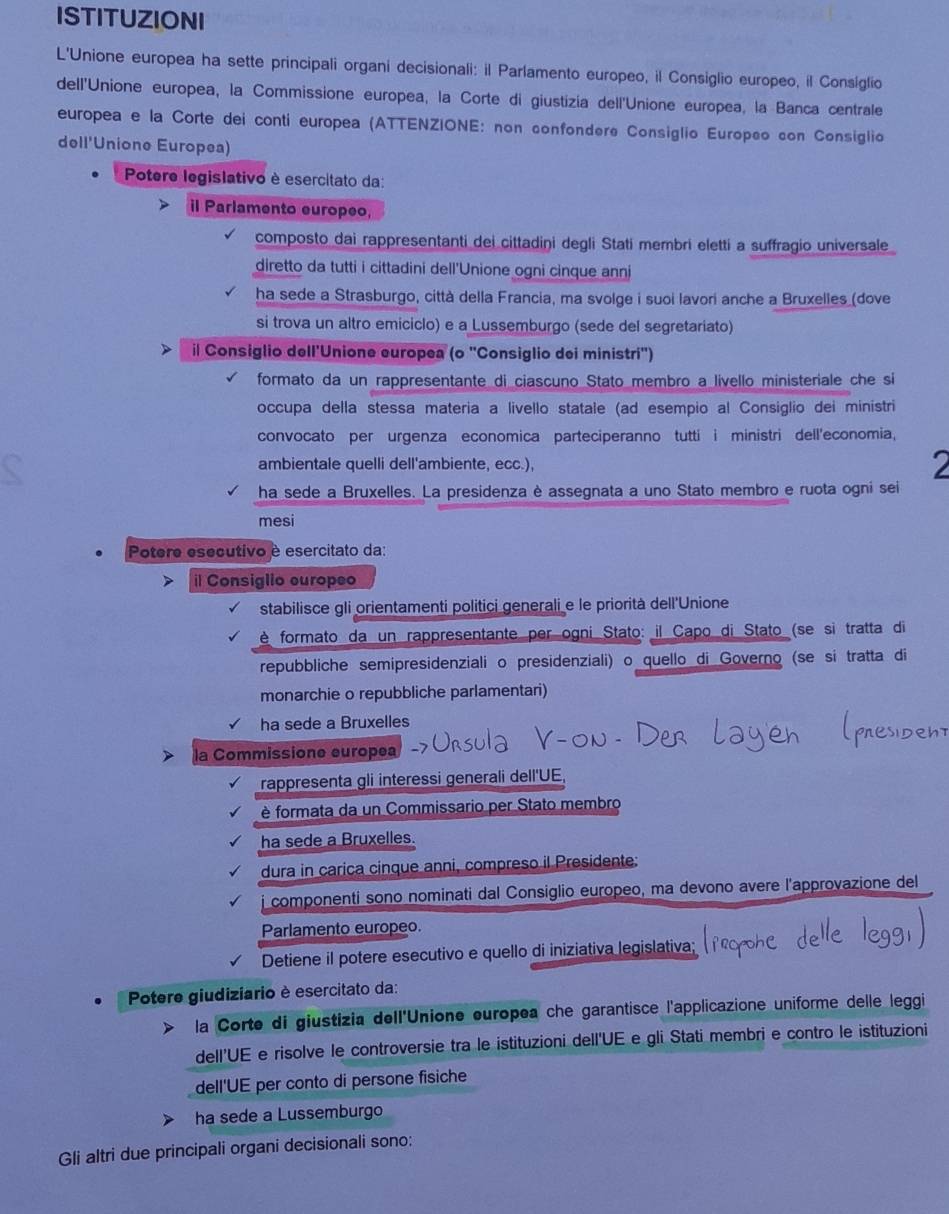 ISTITUZIONI
L'Unione europea ha sette principali organi decisionali: il Parlamento europeo, il Consiglio europeo, il Consiglio
dell'Unione europea, la Commissione europea, la Corte di giustizia dell'Unione europea, la Banca centrale
europea e la Corte dei conti europea (ATTENZIONE: non confondere Consiglio Europeo con Consiglio
dell'Unione Europea)
• Potere legislativo è esercitato da:
➢ il Parlamento europeo,
✓ composto dai rappresentanti dei cittadini degli Stati membri eletti a suffragio universale
diretto da tutti i cittadini dell'Unione ogni cinque anni
✓ ha sede a Strasburgo, città della Francia, ma svolge i suoi lavori anche a Bruxelles (dove
si trova un altro emiciclo) e a Lussemburgo (sede del segretariato)
➢ il Consiglio dell'Unione europea (o "Consiglio dei ministri")
✓ formato da un rappresentante di ciascuno Stato membro a livello ministeriale che si
occupa della stessa materia a livello statale (ad esempio al Consiglio dei ministri
convocato per urgenza economica parteciperanno tutti i ministri dell'economia,
ambientale quelli dell'ambiente, ecc.),
2
✓ ha sede a Bruxelles. La presidenza è assegnata a uno Stato membro e ruota ogni sei
mesi
• Potere esecutivo è esercitato da:
➢ il Consiglio europeo
✓ stabilisce gli orientamenti politici generali e le priorità dell'Unione
✓ è formato da un rappresentante per ogni Stato: il Capo di Stato (se si tratta di
repubbliche semipresidenziali o presidenziali) o quello di Governo (se si tratta di
monarchie o repubbliche parlamentari)
✓ ha sede a Bruxelles
➢ la Commissione europea -> Ursula V-on- Der Layen (president
✓ rappresenta gli interessi generali dell'UE,
✓ è formata da un Commissario per Stato membro
✓ ha sede a Bruxelles.
✓ dura in carica cinque anni, compreso il Presidente;
✓ i componenti sono nominati dal Consiglio europeo, ma devono avere l'approvazione del
Parlamento europeo.
✓ Detiene il potere esecutivo e quello di iniziativa legislativa; (propone delle leggi)
• Potere giudiziario è esercitato da:
➢ la Corte di giustizia dell'Unione europea che garantisce l'applicazione uniforme delle leggi
dell'UE e risolve le controversie tra le istituzioni dell'UE e gli Stati membri e contro le istituzioni
dell'UE per conto di persone fisiche
➢ ha sede a Lussemburgo
Gli altri due principali organi decisionali sono: